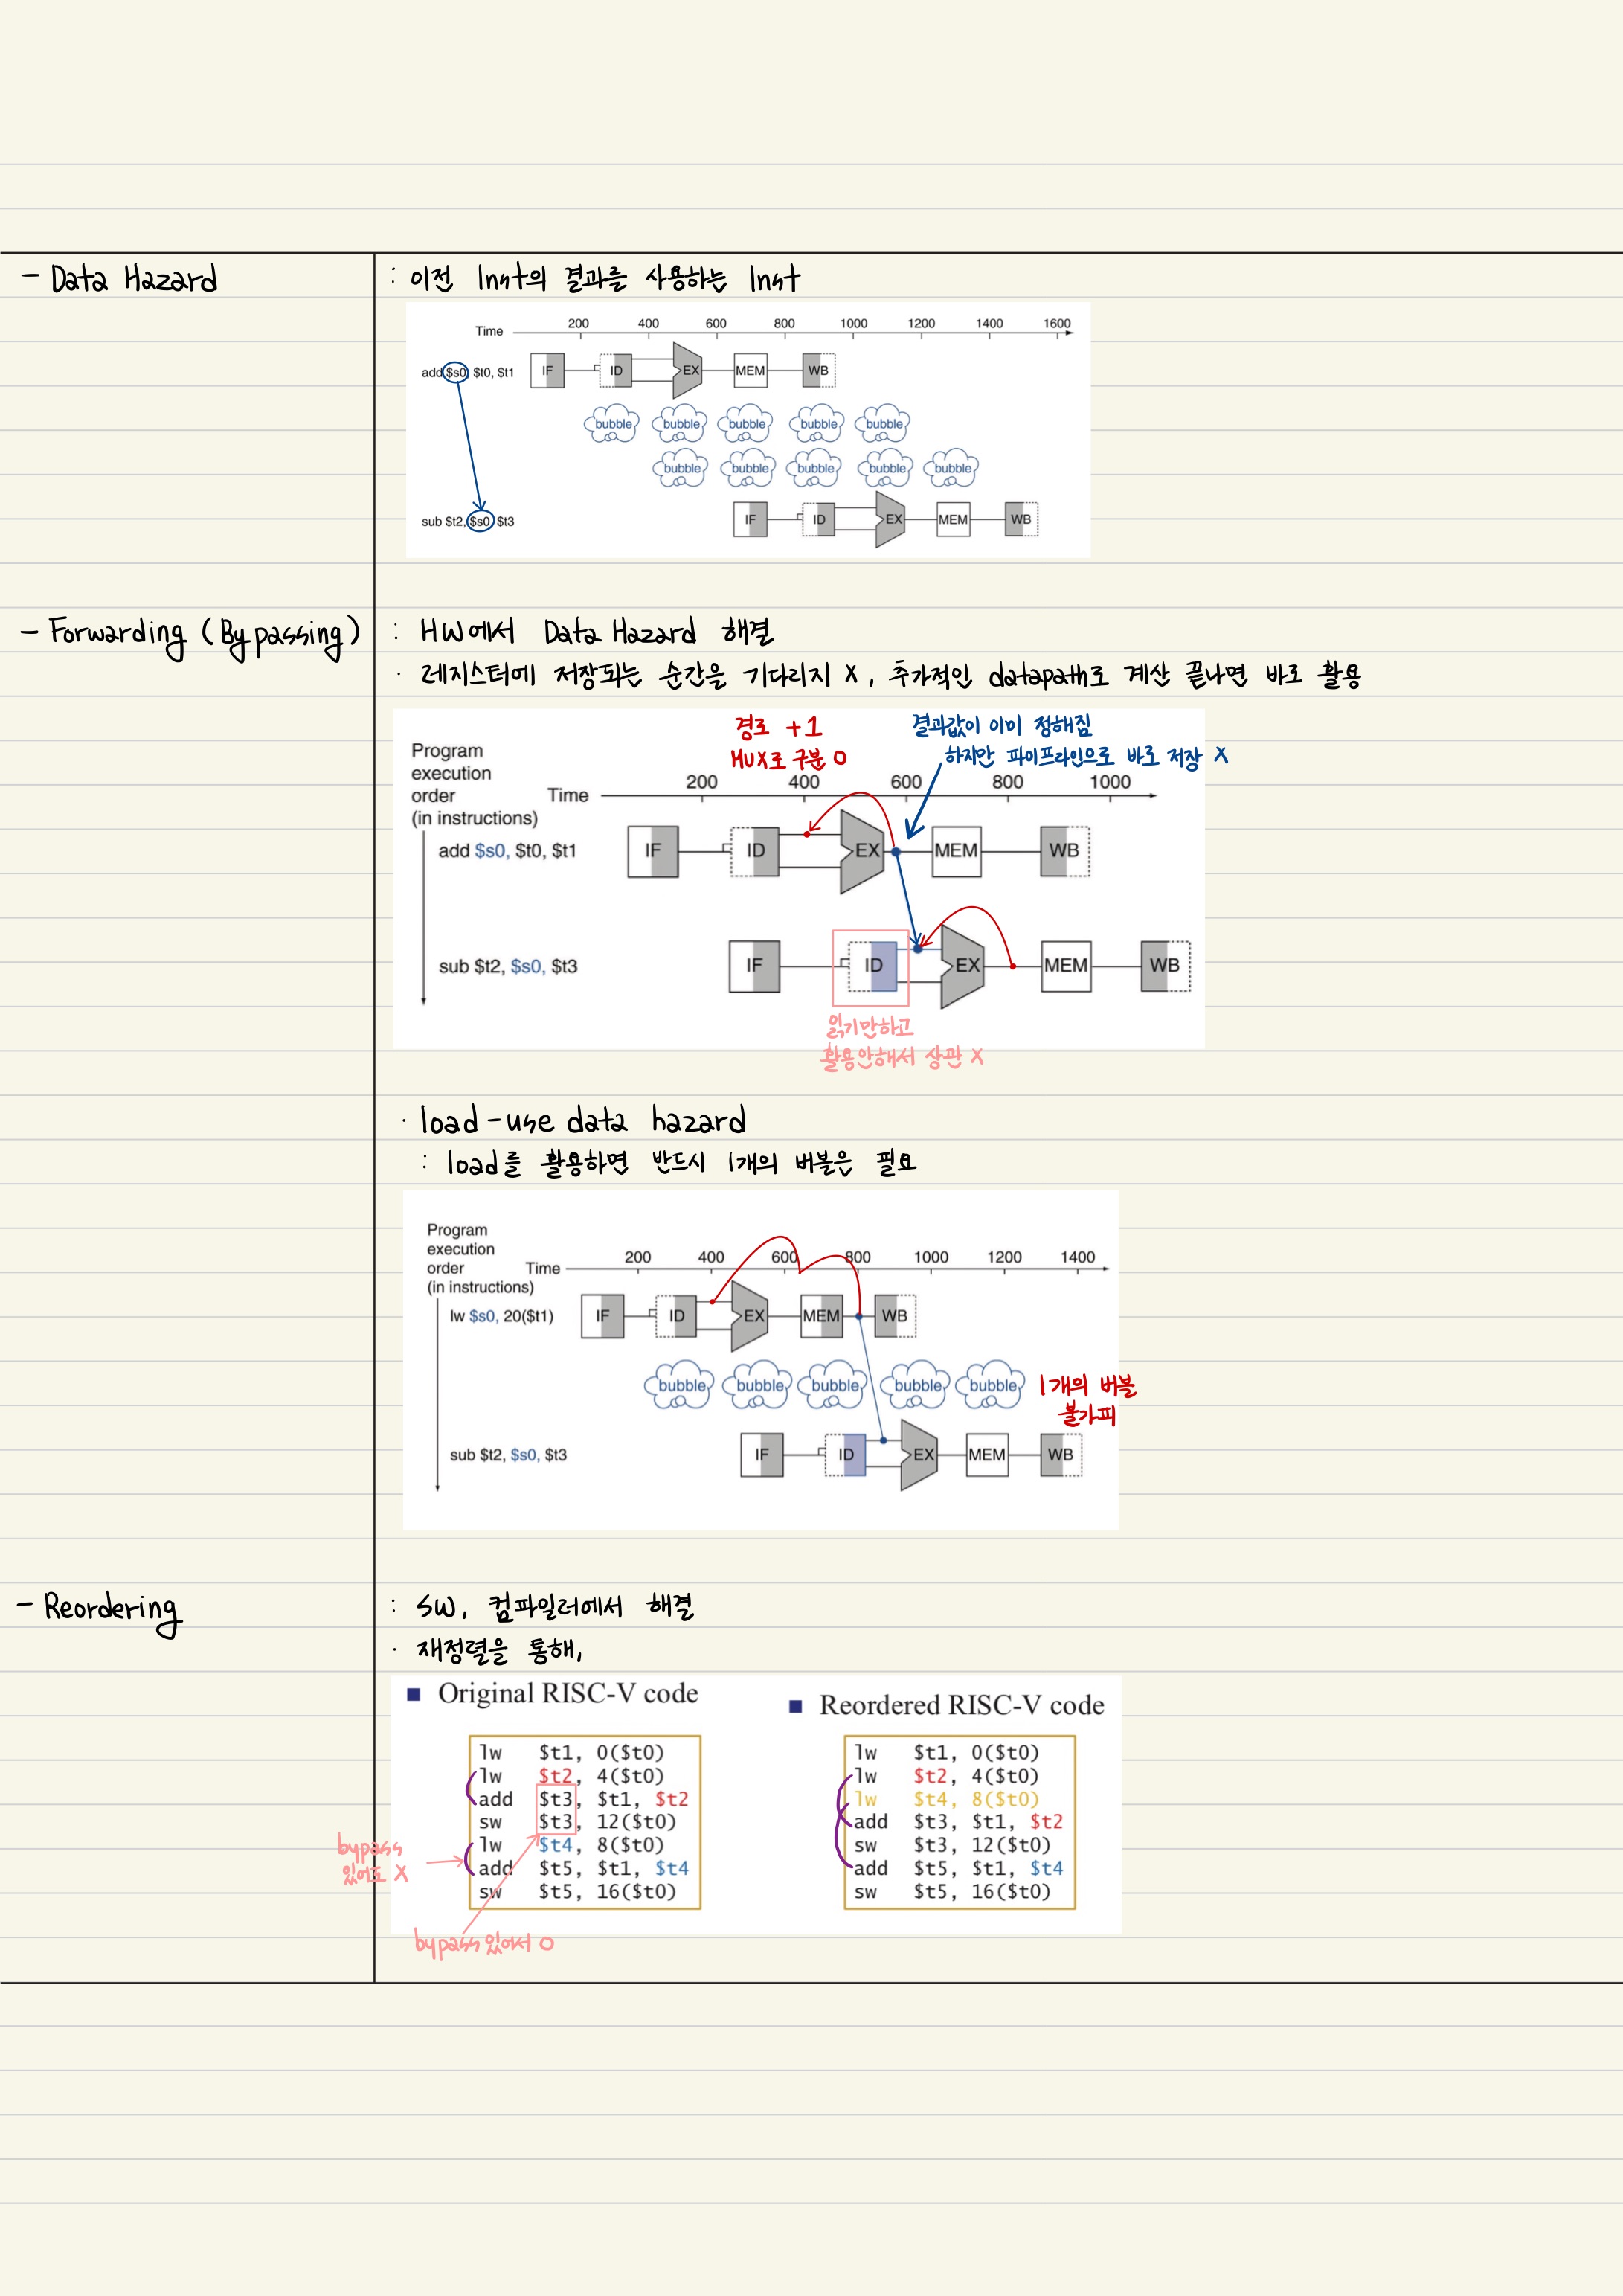 - Data Hazard
: 이전 Inst의 결과를 사용하는 Inst
Time 200 400 600 800 1000 1200 1400 1600
add $s0, $t0, $t1 IF ID EX MEM WB
bubble bubble bubble bubble bubble
bubble bubble bubble bubble bubble
sub $t2, $s0, $t3 IF ID EX MEM WB
- Forwarding (Bypassing)
: HW에서 Data Hazard 해결
· 레지스터에 저장되는 순간을 기다리지 X, 추가적인 datapath로 계산 끝나면 바로 활용
경로 +1
MUX로 구분 O
결과값이 이미 정해짐
하지만 파이프라인으로 바로 저장 X
Program
execution
order
(in instructions)
Time 200 400 600 800 1000
add $s0, $t0, $t1 IF ID EX MEM WB
sub $t2, $s0, $t3 IF ID EX MEM WB
읽기만하고
활용안해서 상관 X
· load-use data hazard
: load를 활용하면 반드시 1개의 버블은 필요
Program
execution
order
(in instructions)
Time 200 400 600 800 1000 1200 1400
lw $s0, 20($t1) IF ID EX MEM WB
bubble bubble bubble bubble bubble
1개의 버블
불가피
sub $t2, $s0, $t3 IF ID EX MEM WB
- Reordering
: SW, 컴파일러에서 해결
· 재정렬을 통해,
■ Original RISC-V code
lw $t1, 0($t0)
lw $t2, 4($t0)
add $t3, $t1, $t2
sw $t3, 12($t0)
lw $t4, 8($t0)
add $t5, $t1, $t4
sw $t5, 16($t0)
bypass
있어도 X
bypass 있어서 O
■ Reordered RISC-V code
lw $t1, 0($t0)
lw $t2, 4($t0)
lw $t4, 8($t0)
add $t3, $t1, $t2
sw $t3, 12($t0)
add $t5, $t1, $t4
sw $t5, 16($t0)